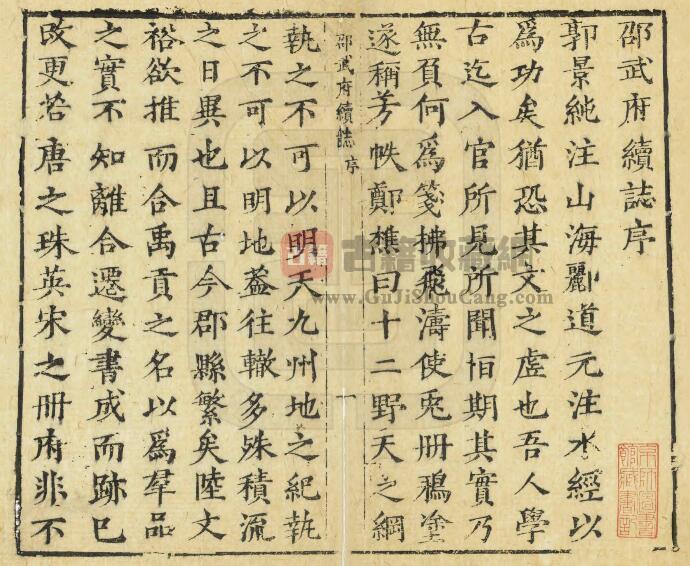 邵武府續誌序
郭景純注山海酈道元注水經以
爲功矣猶恐其文之虛也吾人學
古迄入官所見所聞恒期其實乃
無負何爲箋拂飛濤使兎册鴉塗
遂稱芳帙鄭樵曰十二野天之綱
邵武府續誌 序
一
執之不可以明天九州地之紀執
之不可以明地葢往轍多殊積流
之日異也且古今郡縣繁矣陸文
裕欲推而合禹貢之名以爲羣品
之實不知離合遷變書成而跡已
改更若唐之珠英宋之册府非不
古籍 古籍收藏網
www.GuJiShouCang.com